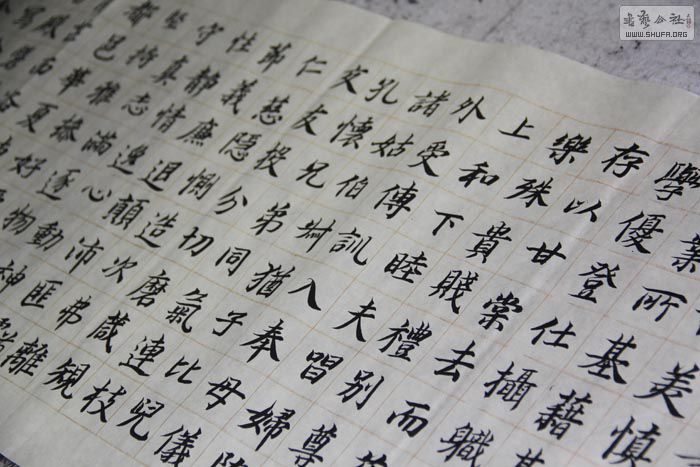 美慎
業所基藉甚
學優登仕攝職
存以甘棠去而益
樂殊貴賤禮別尊
上和下睦夫唱婦隨
外受傅訓入奉母儀
諸姑伯叔猶子比兒
孔懷兄弟同氣連枝
交友投分切磨箴規
仁慈隱惻造次弗離
節義廉退顛沛匪虧
性靜情逸心動神
守真志滿逐物
堅持雅操好
都邑華夏
WWW.SHUFA.ORG